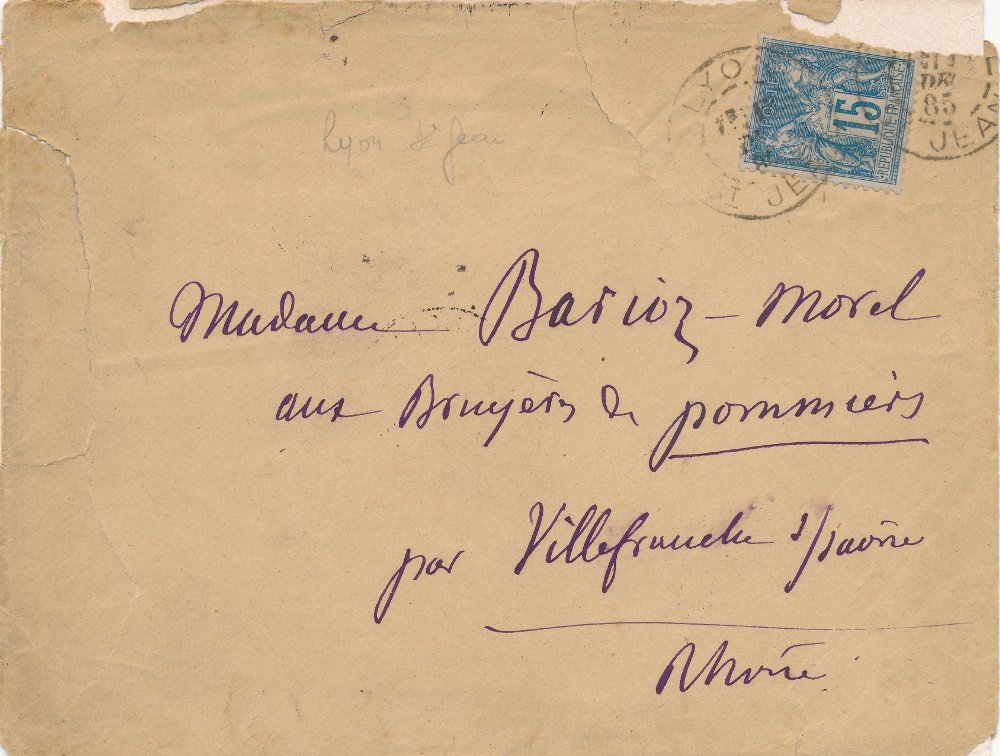 LYON
ST JEAN
15
POSTES
REPUBLIQUE FRANCAISE
DE
85
JEAN
Lyon St Jean
Madame Barioz-Morel
aux Bruyères de pommiers
par Villefranche s/saône
Rhône